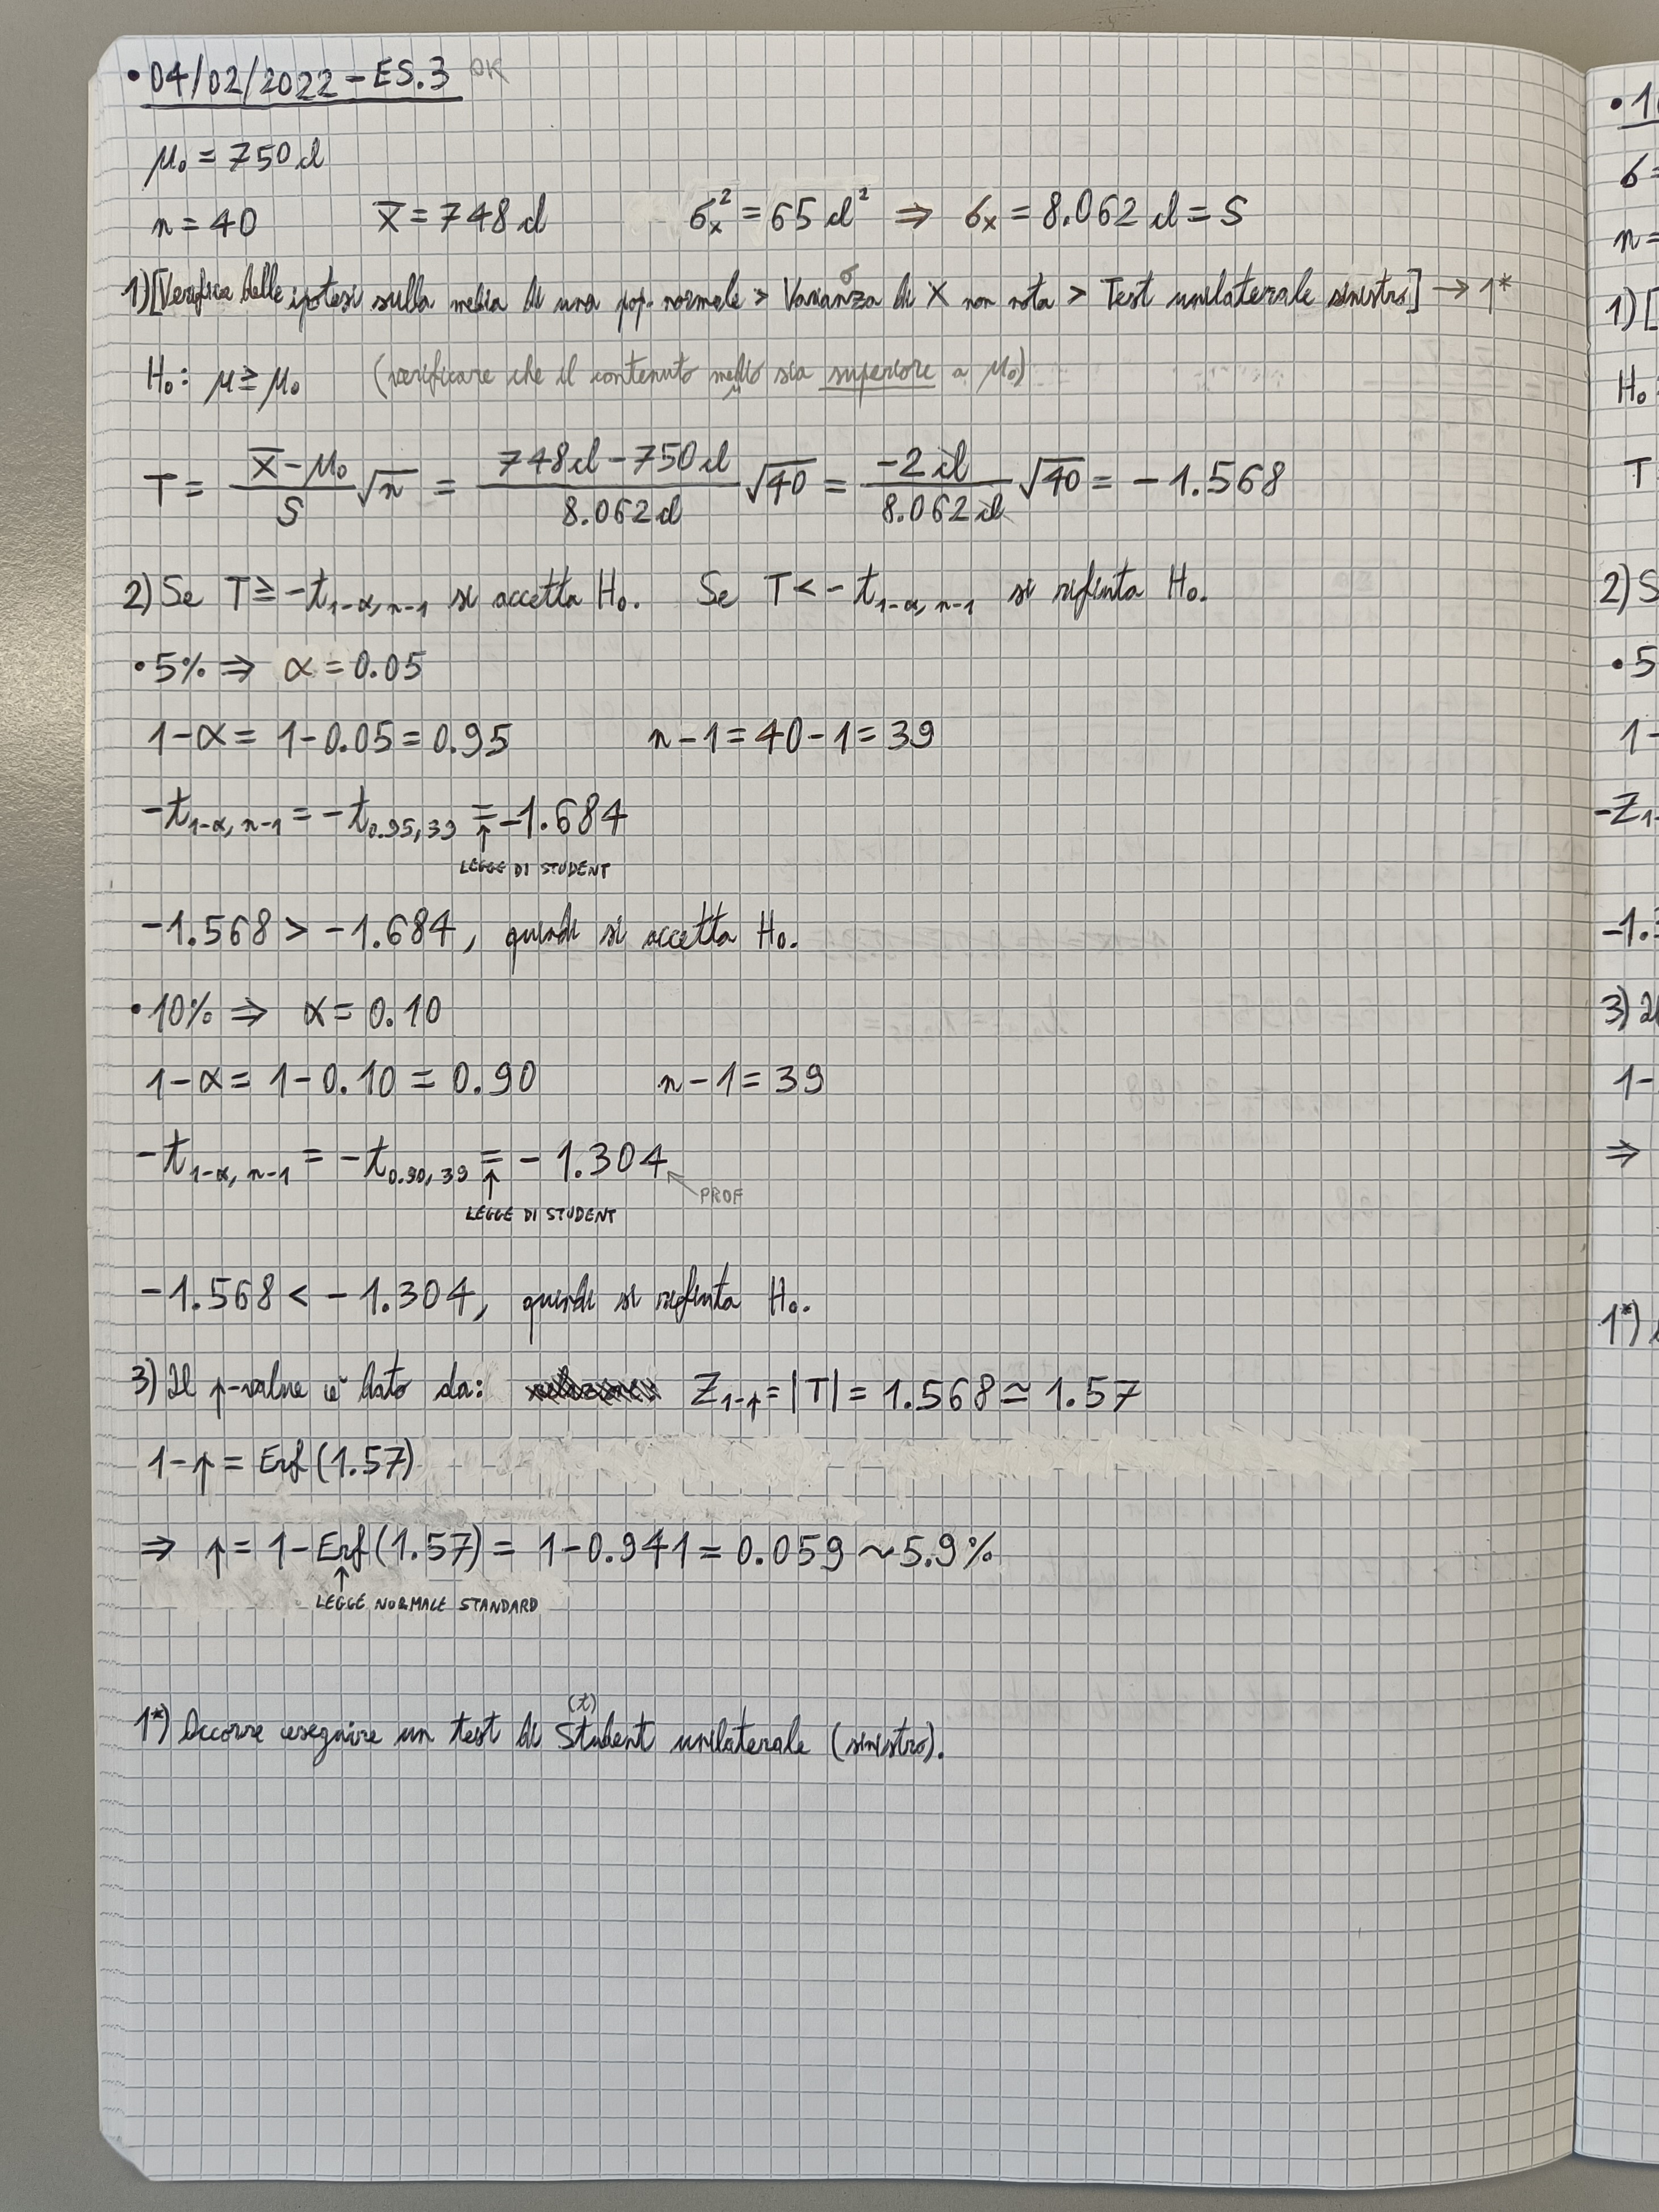 • 04/02/2022 - ES.3 OK
μ₀ = 750 cl
n = 40 x̄ = 748 cl σₓ² = 65 cl² ⇒ σₓ = 8.062 cl = S
1) [Verifica delle ipotesi sulla media di una pop. normale > Varianza σ di X non nota > Test unilaterale sinistro] → 1*
H₀: μ ≥ μ₀ (verificare che il contenuto medio μ sia superiore a μ₀)
T = (x̄ - μ₀)/S √n = (748 cl - 750 cl)/(8.062 cl) √40 = (-2 cl)/(8.062 cl) √40 = -1.568
2) Se T ≥ -t₁₋α, n-1 si accetta H₀. Se T < -t₁₋α, n-1 si rifiuta H₀.
• 5% ⇒ α = 0.05
1-α = 1-0.05 = 0.95 n-1 = 40-1 = 39
-t₁₋α, n-1 = -t₀.₉₅, ₃₉ = -1.684
↑
LEGGE DI STUDENT
-1.568 > -1.684, quindi si accetta H₀.
• 10% ⇒ α = 0.10
1-α = 1-0.10 = 0.90 n-1 = 39
-t₁₋α, n-1 = -t₀.₉₀, ₃₉ = -1.304
↑ PROF
LEGGE DI STUDENT
-1.568 < -1.304, quindi si rifiuta H₀.
3) Il p-value è dato da: Z₁₋p = |T| = 1.568 ≃ 1.57
1-p = Erf(1.57)
⇒ p = 1-Erf(1.57) = 1-0.941 = 0.059 ~ 5.9%
↑
LEGGE NORMALE STANDARD
1*) Occorre eseguire un test di Student (t) unilaterale (sinistro).
• 1
σ=
n=
1) [
H₀:
T
2) S
• 5
1-
-Z₁-
-1.3
3) Il
1-
⇒
1*)